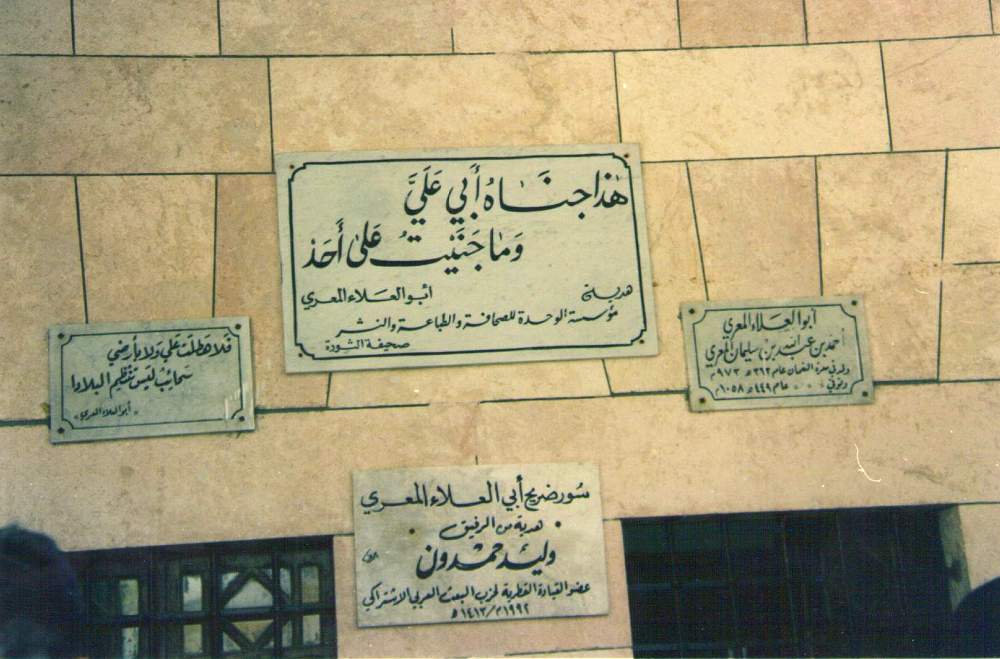 هٰذا جنَاهُ أَبي عَلَيَّ
وَمٰا جَنَيْتُ عَلىٰ أَحَدْ
أبو العلاء المعري
هدية
مؤسسة الوحدة للصحافة والطباعة والنشر
صحيفة الثورة
فَلا هطلَت عَلَيَّ وَلا بأرضي
سَحائبُ لَيسَ تنتظِمُ البلادا
"أبو العلاء المعري"
أبو العلاء المعري
أحمد بن عبدالله بن سليمان المعري
ولد في معرة النعمان عام ٣٦٣ هـ ٩٧٣ م
وتوفي " " عام ٤٤٩ هـ ١٠٥٨ م
سُور ضريح أبي العلاء المعري
هدية من الرفيق
وليد حمدون
عضو القيادة القطرية لحزب البعث العربي الاشتراكي
١٩٩٢م/١٤١٣ هـ